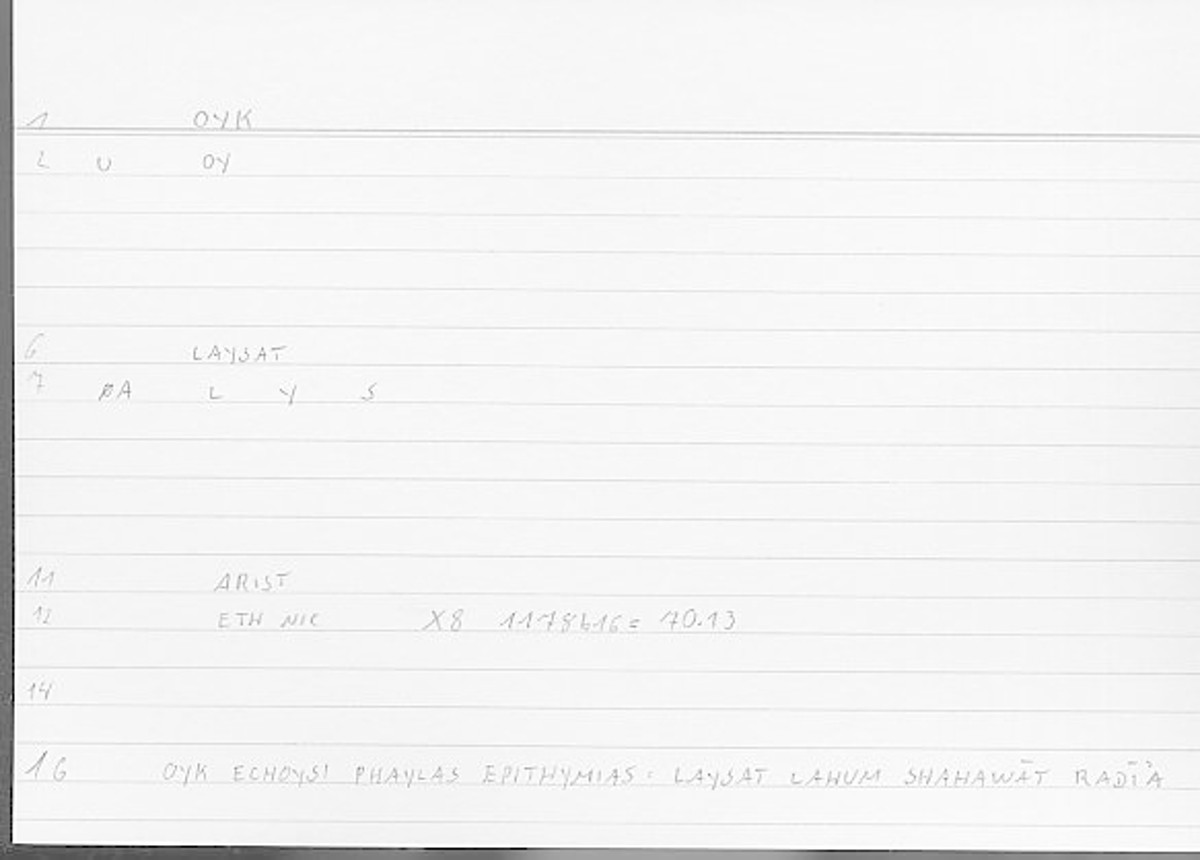 1 OYK
L U OY
6 LAYSAT
7 ØA L Y S
11 ARIST
12 ETH NIC X8 1178b16 = 70.13
14
16 OYK ECHOYSI PHAYLAS EPITHYMIAS : LAYSAT LAHUM SHAHAWĀT RADĪ'A